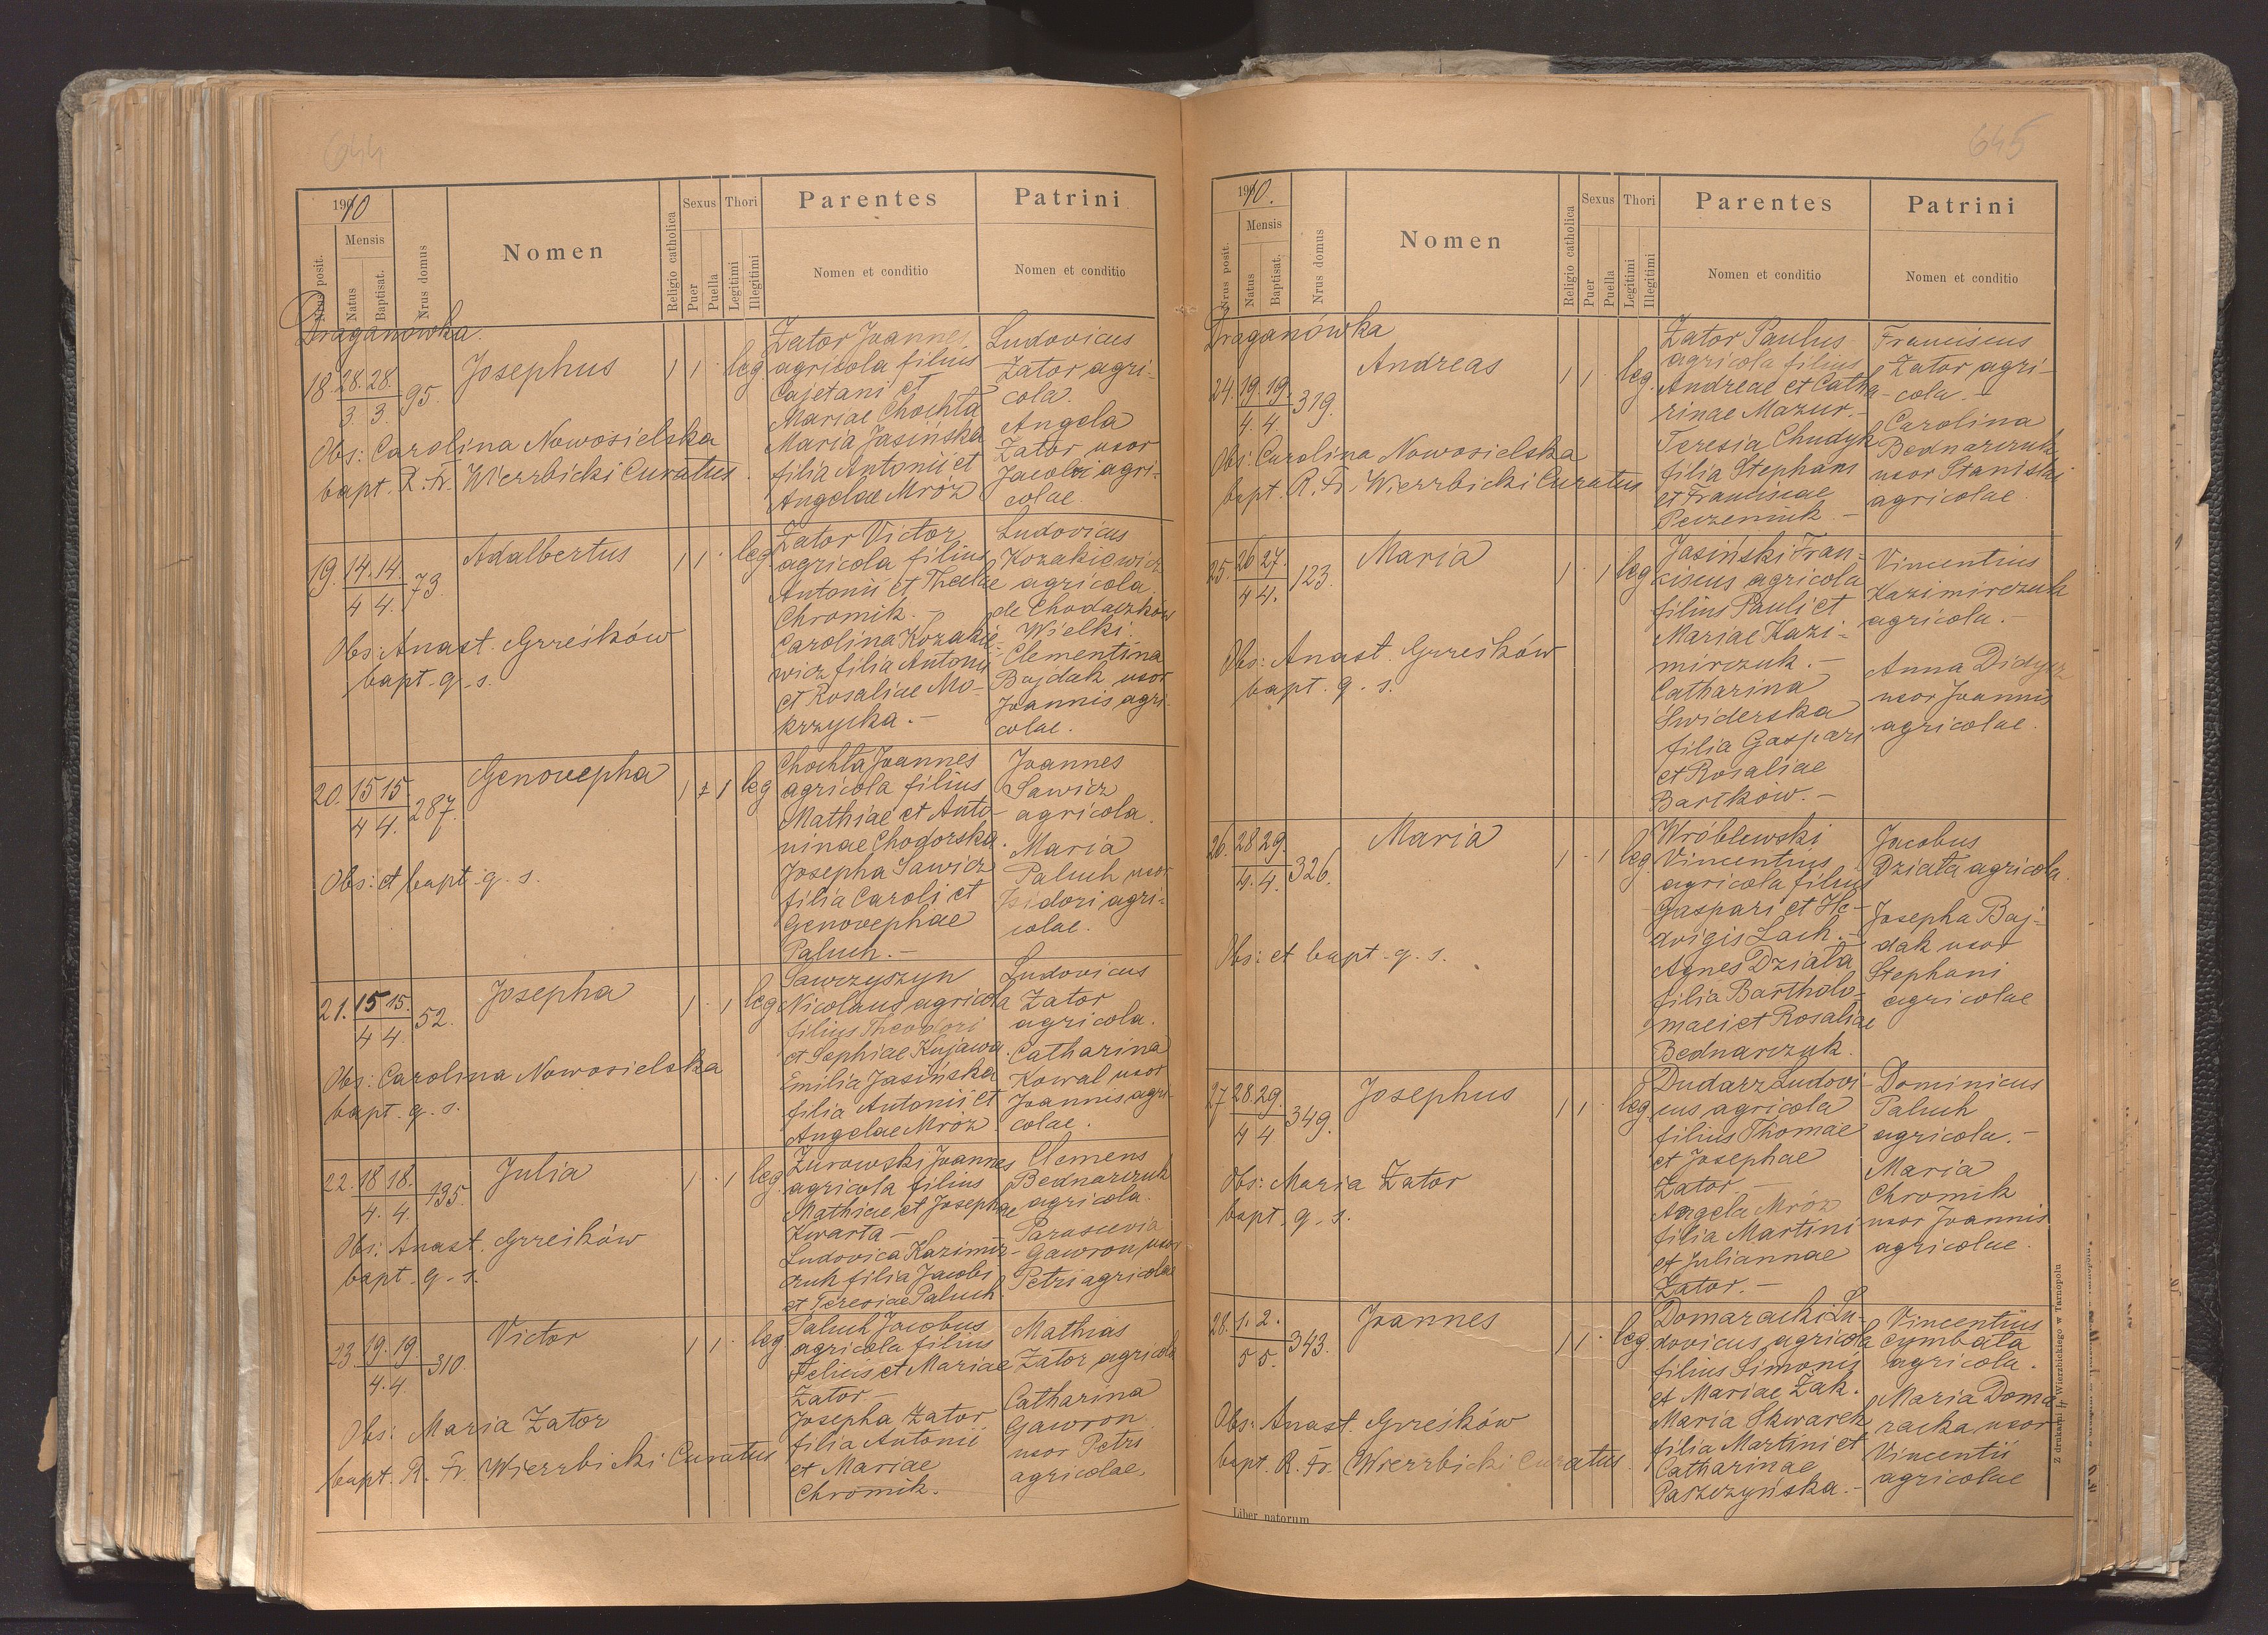 644
1910
Nrus posit.
Mensis
Natus
Baptisat.
Nrus domus
Nomen
Religio catholica
Sexus
Puer
Puella
Thori
Legitimi
Illegitimi
Parentes
Nomen et conditio
Patrini
Nomen et conditio
Draganówka.
18. 28. 28. 95. Josephus 1 1 · leg
3. 3.
Zator Joannes
agricola filius
Cajetani et
Mariae Chochla
Maria Jasińska
filia Antonii et
Angelae Mróz
Ludovicus
Zator agri-
cola.
Angela
Zator uxor
Jacobi agri-
colae.
Obs: Carolina Nowosielska
bapt. R. Fr. Wierzbicki Curatus.
19. 14. 14 73. Adalbertus 1 1 · leg
4 4.
Zator Victor
agricola filius
Antonii et Theclae
Chromik. -
Carolina Kozakie-
wicz filia Antonii
et Rosaliae Mo-
krzycka. -
Ludovicus
Kozakiewicz
agricola
de Chodaczków
Wielki.
Clementina
Bajdak uxor
Joannis agri-
colae.
Obs: Anast. Grześków
bapt. q. s.
20. 15 15 287. Genovepha 1 1 leg
4 4.
Chochla Joannes
agricola filius
Mathiae et Anto-
ninae Chodorska.
Josepha Sawicz
filia Caroli et
Genovephae
Paluch. -
Joannes
Sawicz
agricola.
Maria
Paluch uxor
Isidori agri-
colae.
Obs: et bapt. q. s.
21. 15 15. 52. Josepha 1 · 1 leg
4 4.
Sawrzyszyn
Nicolaus agricola
filius Theodori
et Sophiae Kujawa.
Emilia Jasińska
filia Antonii et
Angelae Mróz
Ludovicus
Zator
agricola.
Catharina
Kowal uxor
Joannis agri-
colae.
Obs: Carolina Nowosielska
bapt. q. s.
22. 18 18. 135. Julia 1 · 1 leg
4. 4.
Żurowski Joannes
agricola filius
Mathiae et Josephae
Kwarta -
Ludovica Kazimir-
czuk filia Jacobi
et Teresiae Paluch
Clemens
Bednarczuk
agricola.
Parascevia
Gawron uxor
Petri agricolae
Obs: Anast. Grześków
bapt. q. s.
23. 19. 19. 310. Victor 1 1 · leg
4. 4
Paluch Jacobus
agricola filius
Felicis et Mariae
Zator -
Josepha Zator
filia Antonii
et Mariae
Chromik.
Mathias
Zator agricola
Catharina
Gawron
uxor Petri
agricolae.
Obs: Maria Zator
bapt. R. Fr. Wierzbicki Curatus
645
1910.
Nrus posit.
Mensis
Natus
Baptisat.
Nrus domus
Nomen
Religio catholica
Sexus
Puer
Puella
Thori
Legitimi
Illegitimi
Parentes
Nomen et conditio
Patrini
Nomen et conditio
Draganówka
24. 19. 19. 319. Andreas 1 1 · leg.
4. 4.
Zator Paulus
agricola filius
Andreae et Catha-
rinae Mazur. -
Teresia Chudyk
filia Stephani
et Franciscae
Peczeniuk -
Franciscus
Zator agri-
cola. -
Carolina
Bednarczuk
uxor Stanislai
agricolae.
Obs: Carolina Nowosielska
bapt. R. Fr. Wierzbicki Curatus
25. 26 27. 123. Maria 1 · 1 leg
4 4.
Jasiński Fran-
ciscus agricola
filius Pauli et
Mariae Kazi-
mirczuk. -
Catharina
Świderska
filia Gaspari
et Rosaliae
Bartków. -
Vincentius
Kazimirczuk
agricola. -
Anna Didycz
uxor Joannis
agricolae.
Obs: Anast. Grześków
bapt. q. s.
26. 28 29. 326. Maria 1 · 1 leg.
4. 4.
Wróblewski
Vincentius
agricola filius
Gaspari et He-
dvigis Lach. -
Agnes Działa
filia Bartholo-
maei et Rosaliae
Bednarczuk.
Jacobus
Działa agricola.
Josepha Baj-
dak uxor
Stephani
agricolae
Obs: et bapt. q. s.
27 28. 29. 349. Josephus 1 1 · leg.
4 4
Dudarz Ludovi-
cus agricola
filius Thomae
et Josephae
Zator -
Angela Mróz
filia Martini
et Juliannae
Zator. -
Dominicus
Paluch
agricola. -
Maria
Chromik
uxor Joannis
agricolae.
Obs: Maria Zator
bapt. q. s.
28. 1. 2. 343. Joannes 1 1 · leg.
5 5.
Domaracki Lu-
dovicus agricola
filius Simonis
et Mariae Żak.
Maria Skwarek
filia Martini et
Catharinae
Paszczyńska. -
Vincentius
Cymbała
agricola.
Maria Doma-
racka uxor
Vincentii
agricolae
Obs: Anast. Grześków
bapt. R. Fr. Wierzbicki Curatus.
Liber natorum
Z drukarni W. Wierzbickiego w Tarnopolu